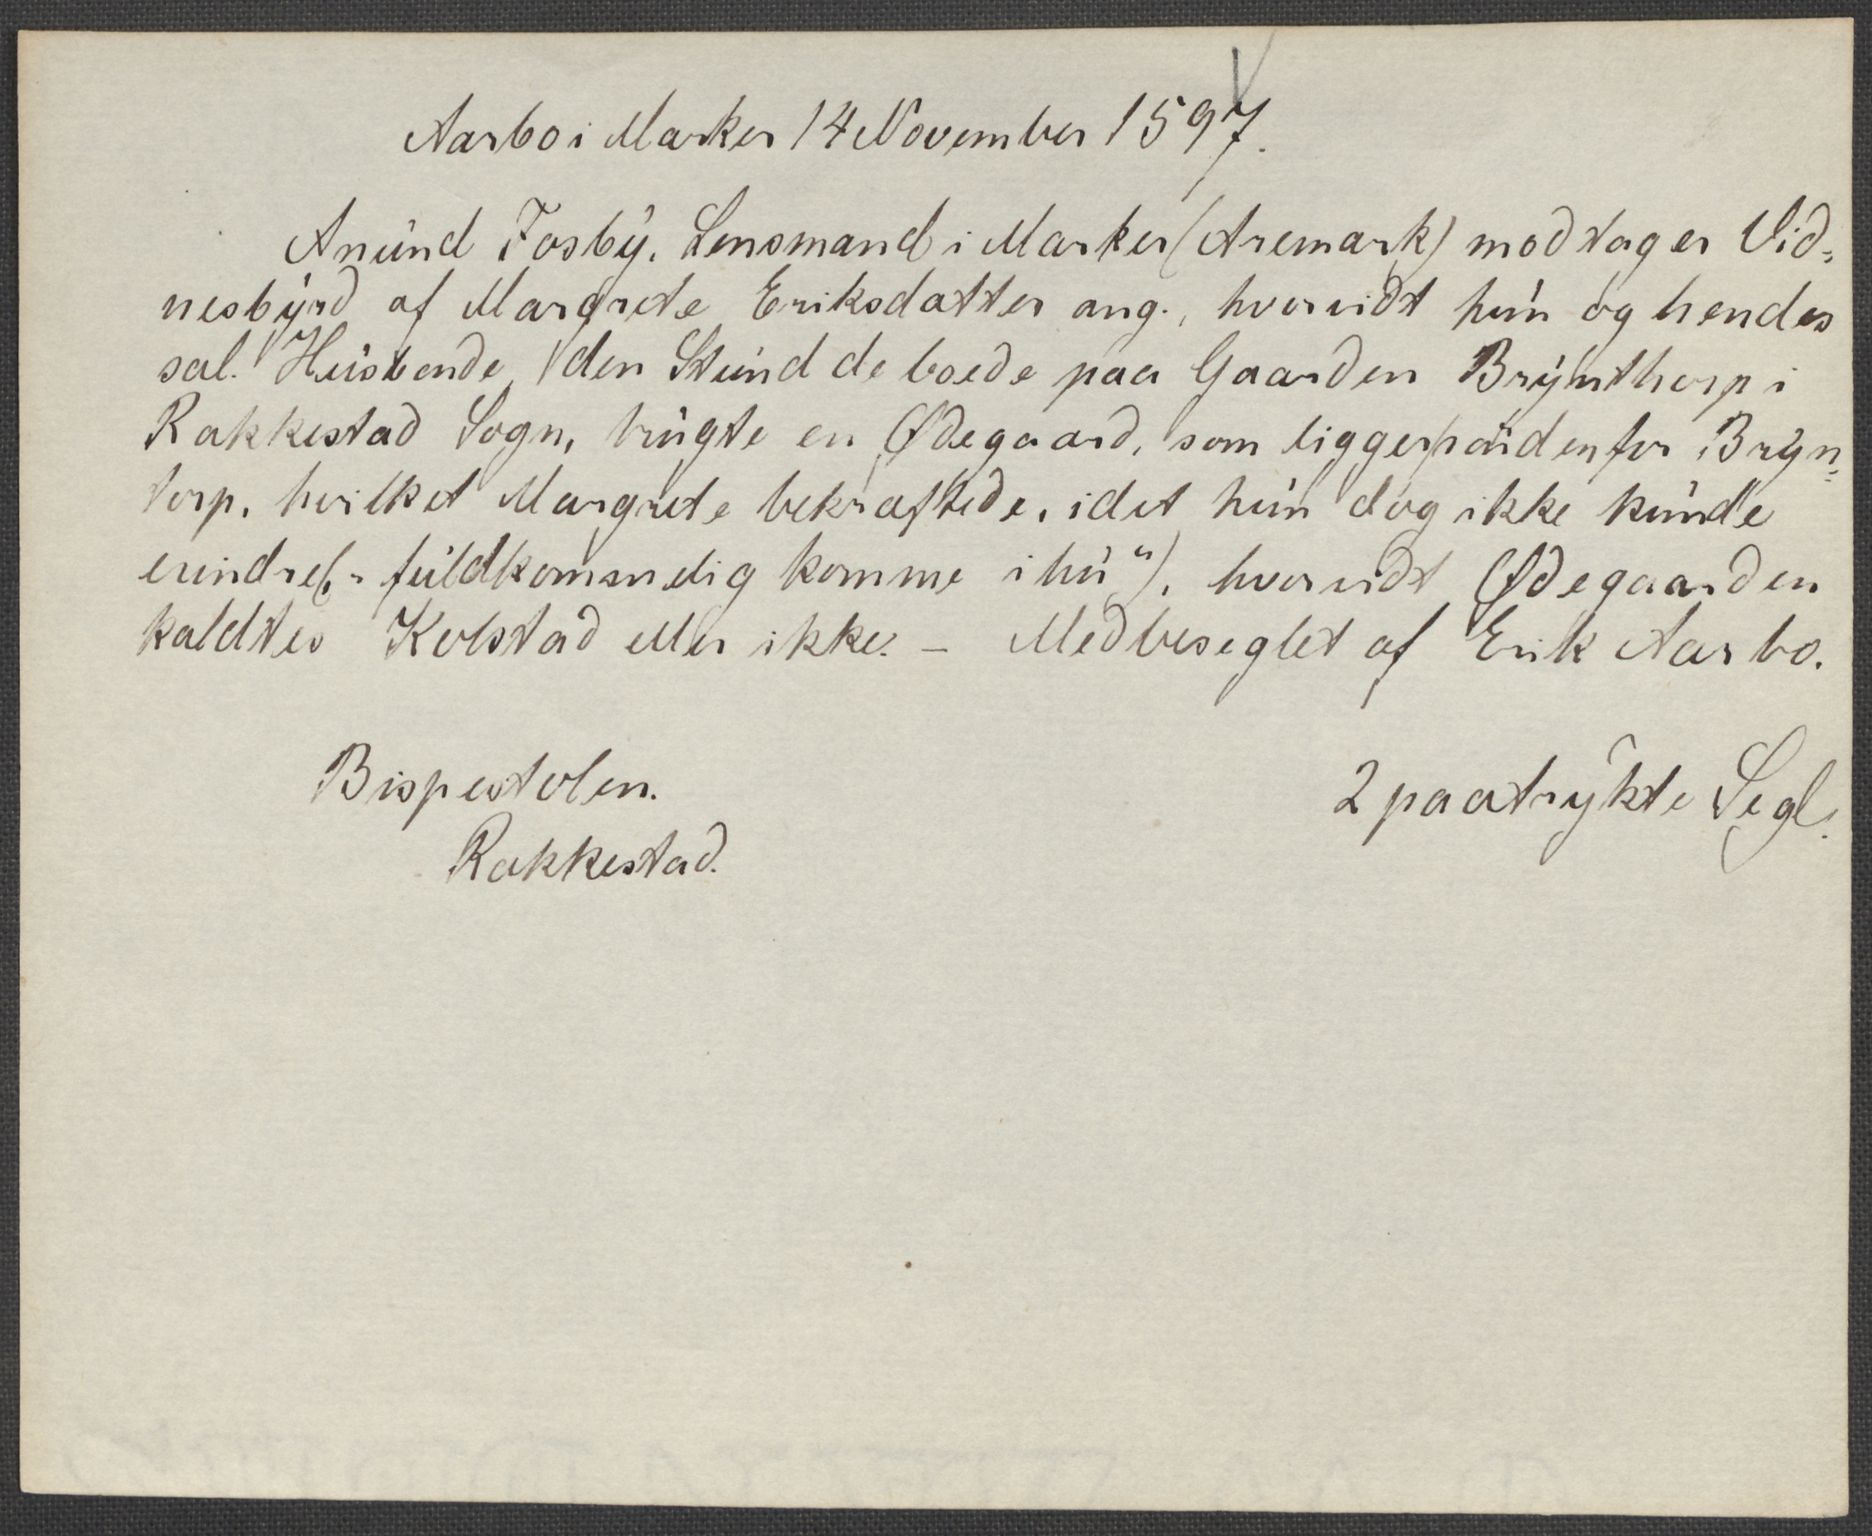 Aarbo i Marker 14 November 1597.
Anund Fosby, Lensmand i Marker (Aremark) modtager Vid-
nesbyrd af Margrete Eriksdatter ang., hvorvidt hun og hendes
sal. Husbonde, den Stund de boede paa Gaarden Brynthorp i
Rakkestad Sogn, brugte en Ødegaard, som ligger nordenfor Bryn-
torp, hvilket Margrete bekræftede, idet hun dog ikke kunde
erindre („fuldkommelig komme ihu“), hvorvidt Ødegaarden
kaldtes Kolstad eller ikke. – Medbeseglet af Erik Aarbo.
Bispestolen.
2 paatrykte Segl.
Rakkestad.